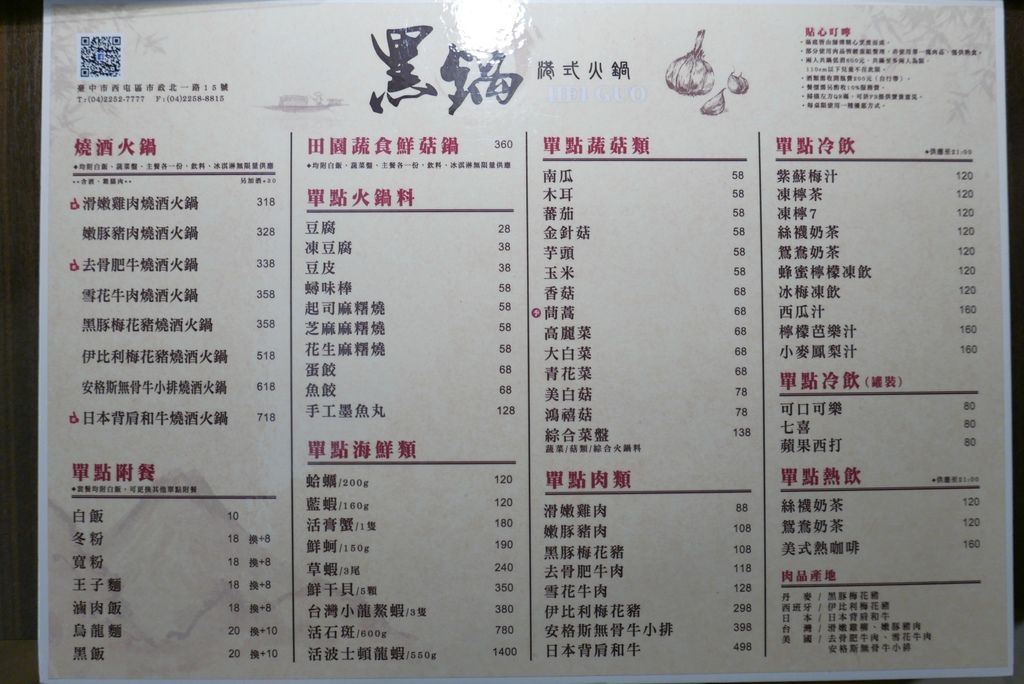 黑鍋 港式火鍋
HEI GUO
臺中市西屯區市政北一路15號
T:(04)2252-7777 F:(04)2258-8815
貼心叮嚀
燒酒火鍋
◆均附白飯、蔬菜盤、主餐各一份，飲料、冰淇淋無限量供應
滑嫩雞肉燒酒火鍋 318
嫩豚豬肉燒酒火鍋 328
去骨肥牛燒酒火鍋 338
雪花牛肉燒酒火鍋 358
黑豚梅花豬燒酒火鍋 358
伊比利梅花豬燒酒火鍋 518
安格斯無骨牛小排燒酒火鍋 618
日本背肩和牛燒酒火鍋 718
單點附餐
◆套餐均附白飯，可更換其他單點附餐
白飯 10
冬粉 18 換+8
寬粉 18 換+8
王子麵 18 換+8
滷肉飯 18 換+8
烏龍麵 20 換+10
黑飯 20 換+10
田園蔬食鮮菇鍋 360
◆均附白飯、蔬菜盤、主餐各一份，飲料、冰淇淋無限量供應
單點火鍋料
豆腐 28
凍豆腐 38
豆皮 38
蟳味棒 58
起司麻糬燒 58
芝麻麻糬燒 58
花生麻糬燒 58
蛋餃 68
魚餃 68
手工墨魚丸 128
單點海鮮類
蛤蠣/200g 120
藍蝦/160g 120
活膏蟹/1隻 180
鮮蚵/150g 190
草蝦/3尾 240
鮮干貝/5顆 350
台灣小龍螯蝦/3隻 380
活石斑/600g 780
活波士頓龍蝦/550g 1400
單點蔬菇類
南瓜 58
木耳 58
蕃茄 58
金針菇 58
芋頭 58
玉米 58
香菇 68
茼蒿 68
高麗菜 68
大白菜 68
青花菜 68
美白菇 78
鴻禧菇 78
綜合菜盤 138
蔬菜/菇類/綜合火鍋料
單點肉類
滑嫩雞肉 88
嫩豚豬肉 108
黑豚梅花豬 108
去骨肥牛肉 118
雪花牛肉 128
伊比利梅花豬 298
安格斯無骨牛小排 398
日本背肩和牛 498
單點冷飲 ◆供應至21:00
紫蘇梅汁 120
凍檸茶 120
凍檸7 120
絲襪奶茶 120
鴛鴦奶茶 120
蜂蜜檸檬凍飲 120
冰梅凍飲 120
西瓜汁 160
檸檬芭樂汁 160
小麥鳳梨汁 160
單點冷飲(罐裝)
可口可樂 80
七喜 80
蘋果西打 80
單點熱飲 ◆供應至21:00
絲襪奶茶 120
鴛鴦奶茶 120
美式熱咖啡 160
肉品產地
丹麥/黑豚梅花豬
西班牙/伊比利梅花豬
日本/日本背肩和牛
台灣/滑嫩雞腿、嫩豚豬肉
美國/去骨肥牛肉、雪花牛肉
安格斯無骨牛小排